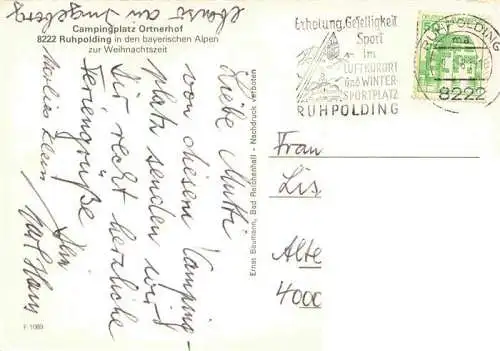 ebenso an Ingeborg
Campingplatz Ortnerhof
8222 Ruhpolding in den bayerischen Alpen
zur Weihnachtszeit
Liebe Mutti
von diesem Camping-
platz senden wir
Dir recht herzliche
Feriengrüße
Dein
Karl Hans
F 1089
Ernst Baumann, Bad Reichenhall - Nachdruck verboten
Erholung, Geselligkeit
Sport
im
LUFTKURORT
und WINTER-
SPORTPLATZ
RUHPOLDING
RUHPOLDING
ma
8222
Frau
Lis
Alte
4000